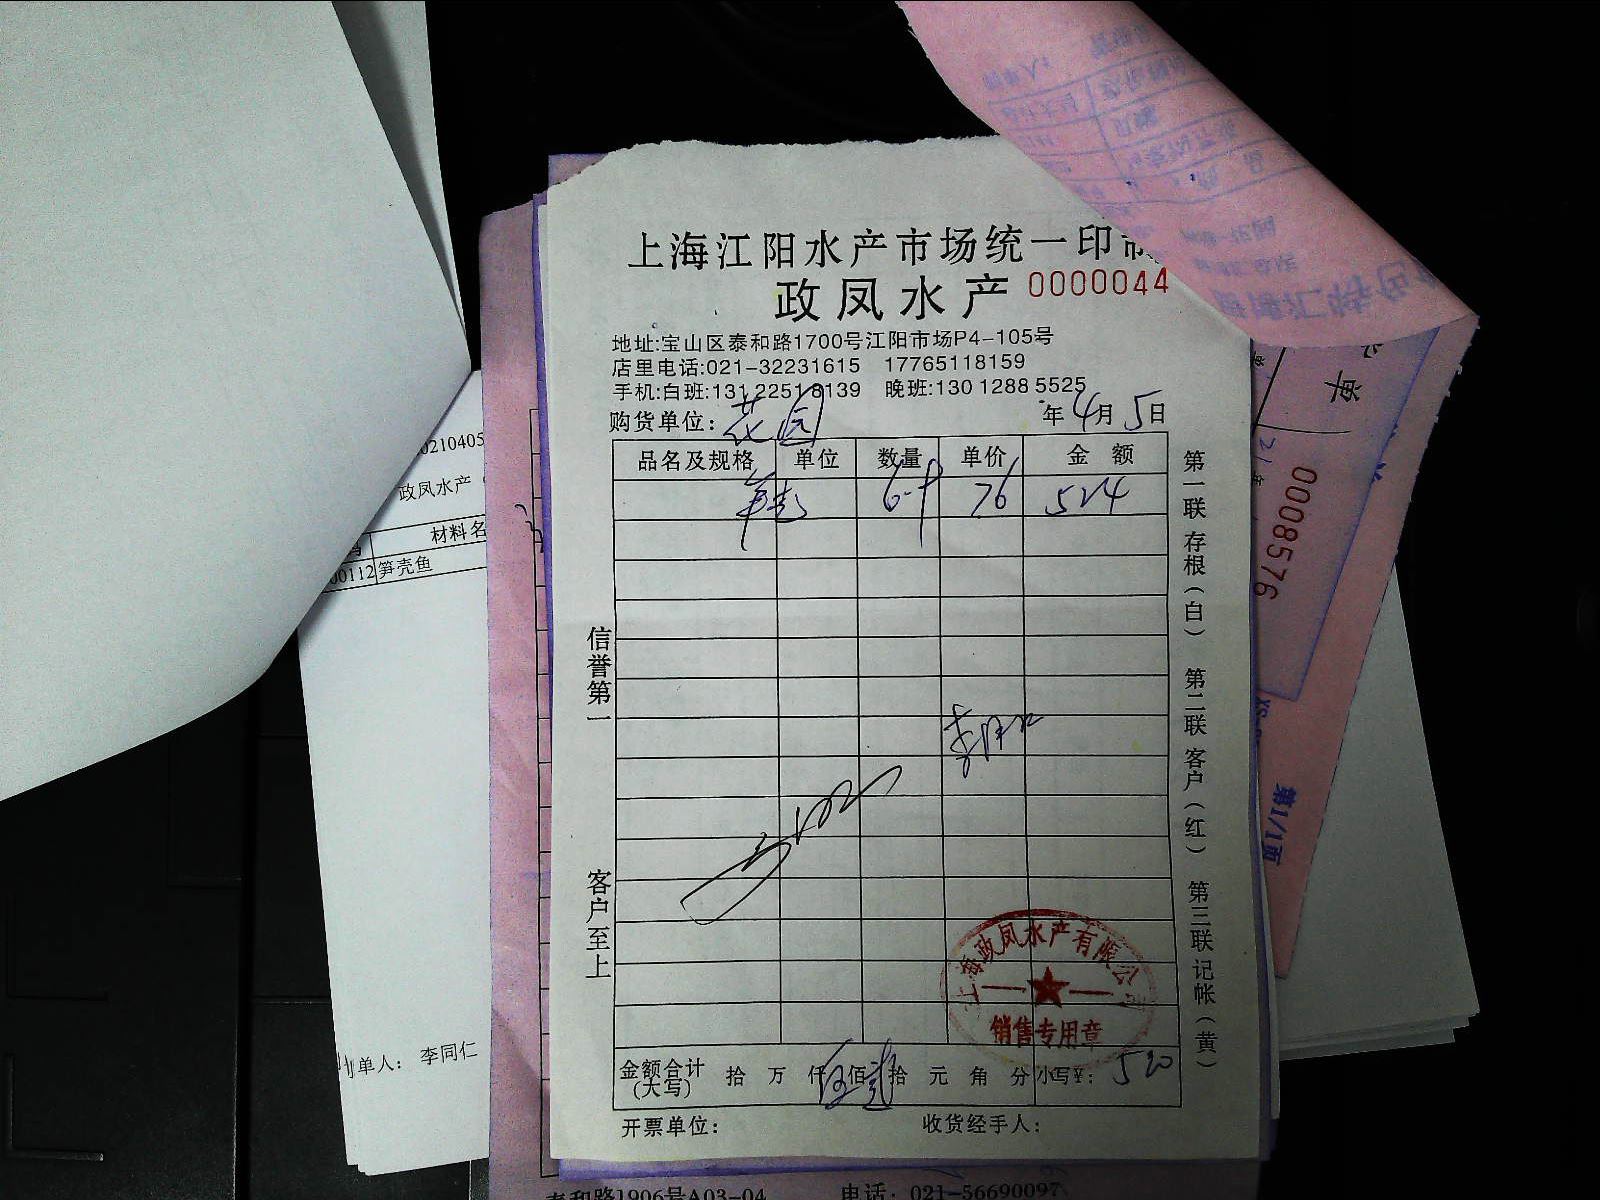 上海江阳水产市场统一印制
政凤水产 0000044
地址:宝山区泰和路1700号江阳市场P4-105号
店里电话:021-32231615 17765118159
手机:白班:131 2251 8139 晚班:130 1288 5525
购货单位: 花园 年 4月 5日
品名及规格 单位 数量 单价 金额
76 524
信誉第一
客户至上
第一联存根(白) 第二联客户(红) 第三联记帐(黄)
上海政凤水产有限公司
销售专用章
金额合计(大写) 拾 万 仟 伍佰 拾 元 角 分 小写¥: 520
开票单位: 收货经手人:
0210405
政凤水产
材料名
00112 笋壳鱼
单人: 李同仁
单
0008576
第1/1页
泰和路1906号A03-04 电话: 021-56690097